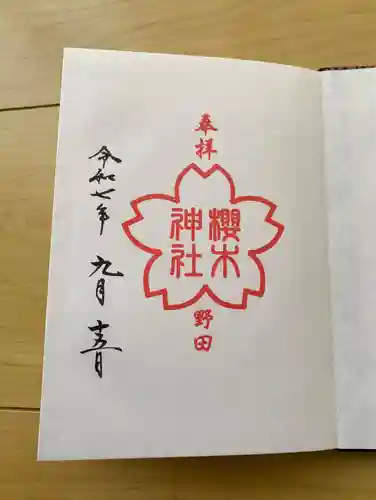 奉拝
櫻木
神社
野田
令和七年
九月
十五日